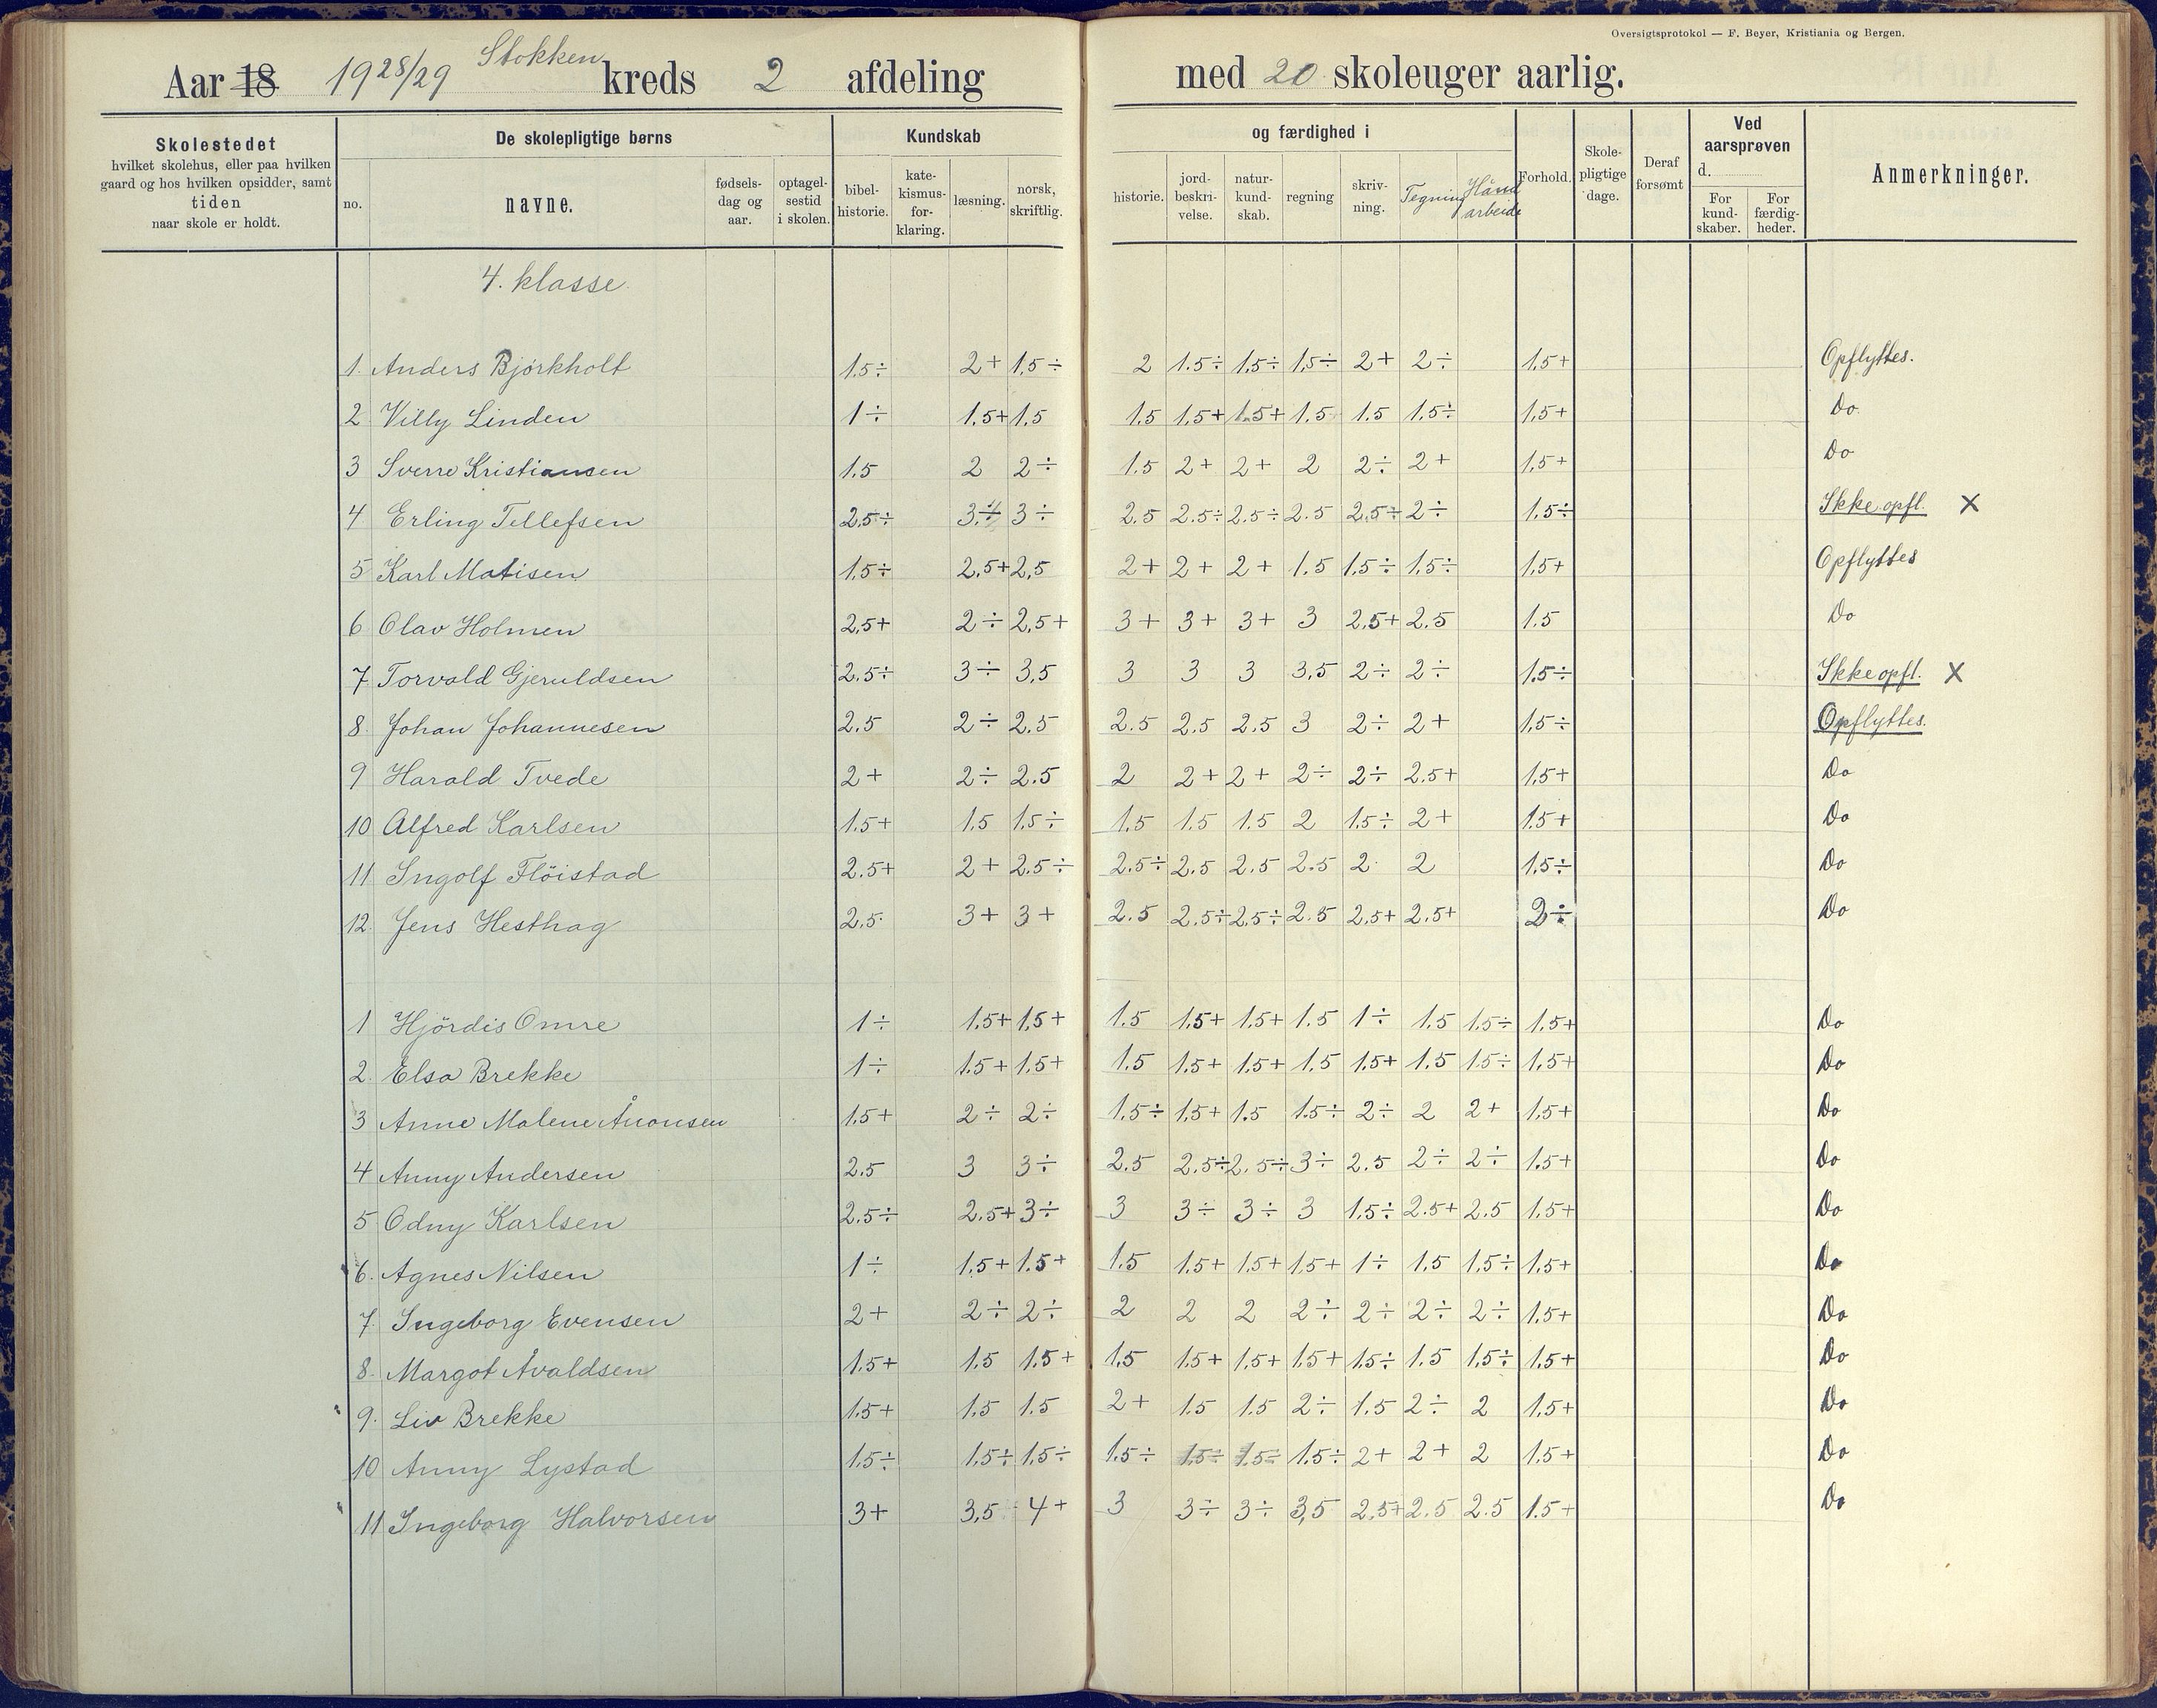 Oversigtsprotokol — F. Beyer, Kristiania og Bergen.
Aar 18 1928/29 Stokken kreds 2 afdeling med 20 skoleuger aarlig.
Skolestedet
hvilket skolehus, eller paa hvilken
gaard og hos hvilken opsidder, samt
tiden
naar skole er holdt.
De skolepligtige børns
no.
navne.
fødsels-
dag og
aar.
optagel-
sestid
i skolen.
Kundskab
bibel-
historie.
kate-
kismus-
for-
klaring.
læsning.
norsk,
skriftlig.
og færdighed i
historie.
jord-
beskri-
velse.
natur-
kund-
skab.
regning
skriv-
ning.
Tegning
Hånd
arbeide
Forhold.
Skole-
pligtige
dage.
Deraf
forsømt
Ved
aarsprøven
d.
For
kund-
skaber.
For
færdig-
heder.
Anmerkninger.
4. klasse
1. Anders Bjørkholt 1.5÷ 2+ 1,5÷ 2 1.5÷ 1,5÷ 1,5÷ 2+ 2÷ 1.5+ Opflyttes.
2 Villy Linden 1÷ 1.5+ 1.5 1.5 1.5+ 1.5+ 1.5 1.5 1.5÷ 1.5+ Do.
3 Sverre Kristiansen 1.5 2 2÷ 1.5 2+ 2+ 2 2÷ 2+ 1.5+ Do
4 Erling Tellefsen 2.5÷ 3÷ 2.5 2.5÷ 2.5÷ 2.5 2.5÷ 2÷ 1.5÷ Ikke opfl. X
5 Karl Matisen 1.5÷ 2,5+ 2,5 2+ 2+ 2+ 1.5 1.5÷ 1,5÷ 1.5+ Opflyttes
6 Olav Holmen 2,5+ 2÷ 2,5+ 3+ 3+ 3+ 3 2.5+ 2.5 1.5 Do
7 Torvald Gjeruldsen 2.5÷ 3÷ 3,5 3 3 3 3,5 2÷ 2÷ 1.5÷ Ikke opfl. X
8. Johan Johannesen 2.5 2÷ 2.5 2.5 2.5 2.5 3 2÷ 2+ 1,5÷ Opflyttes.
9 Harald Tvede 2+ 2÷ 2.5 2 2+ 2+ 2÷ 2÷ 2.5+ 1.5+ Do
10 Alfred Karlsen 1.5+ 1.5 1.5÷ 1.5 1.5 1.5 2 1.5÷ 2+ 1.5+ Do
11 Ingolf Flöistad 2.5+ 2+ 2.5÷ 2.5÷ 2.5 2.5 2.5 2 2 1.5÷ Do
12. Jens Hesthag 2.5 3+ 3+ 2.5 2.5÷ 2.5÷ 2.5 2.5+ 2.5+ 2÷ Do
1 Hjördis Omre 1÷ 1.5+ 1,5+ 1.5 1.5+ 1.5+ 1.5 1÷ 1.5 1.5÷ 1.5+ Do
2. Elsa Brekke 1÷ 1.5+ 1.5+ 1.5 1.5+ 1.5+ 1.5 1.5+ 1.5 1.5÷ 1.5+ Do
3 Anne Malene Ånonsen 1.5+ 2÷ 2÷ 1.5÷ 1.5+ 1.5 1.5÷ 2÷ 2 2+ 1.5+ Do
4 Anny Andersen 2.5 3 3÷ 2.5 2.5÷ 2.5÷ 3÷ 2.5 2÷ 2÷ 1.5+ Do
5 Odny Karlsen 2.5÷ 2.5+ 3÷ 3 3÷ 3÷ 3 1.5÷ 2.5+ 2.5 1.5+ Do
6. Agnes Nilsen 1÷ 1.5+ 1.5+ 1.5 1.5+ 1.5+ 1.5+ 1÷ 1.5 1.5÷ 1.5+ Do
7 Ingeborg Evensen 2+ 2÷ 2÷ 2 2 2 2÷ 2÷ 2÷ 2÷ 1.5+ Do
8. Margot Åvaldsen 1.5+ 1.5 1.5+ 1.5 1.5+ 1.5+ 1.5+ 1.5÷ 1.5 1.5÷ 1.5+ Do
9. Liv Brekke 1.5+ 1.5 1.5 2+ 1.5 1.5 2÷ 1.5 2÷ 2 1.5+ Do
10 Anny Lystad 1.5÷ 1.5÷ 1.5÷ 1.5÷ 1.5÷ 1.5÷ 1.5÷ 2+ 2+ 2 1.5+ Do
11 Ingeborg Halvorsen 3+ 3,5 4+ 3 3÷ 3÷ 3,5 2.5+ 2.5 2.5 1.5+ Do